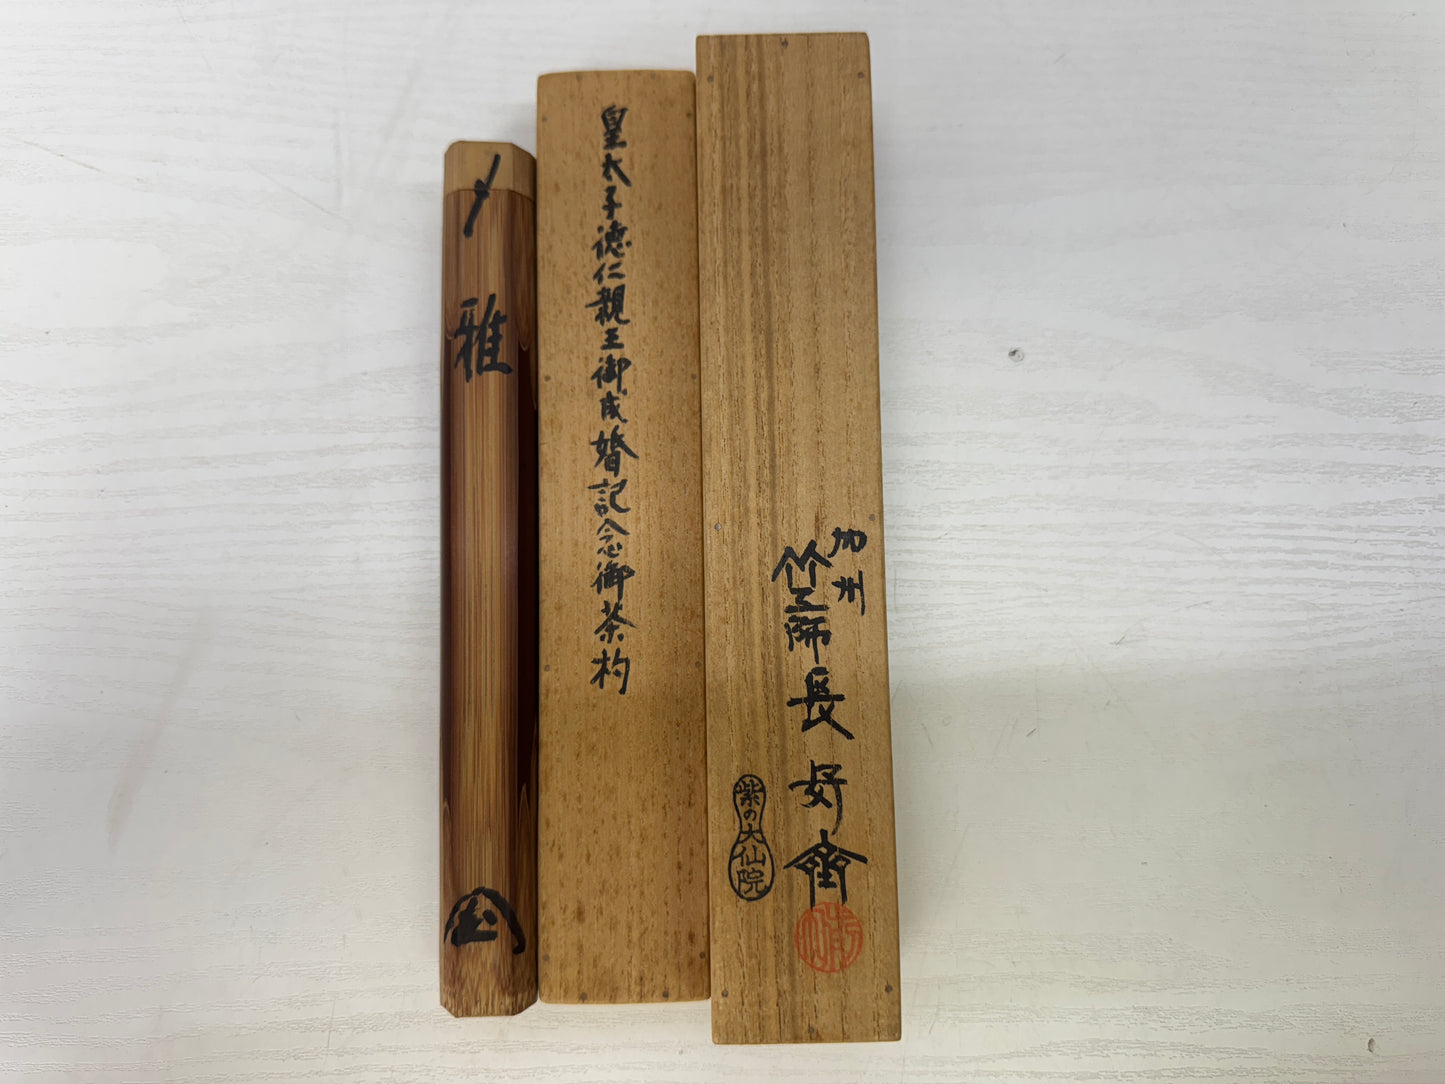 加州
竹工師長好斎
紫の大仙院
皇太子德仁親王御成婚記念御茶杓
雅